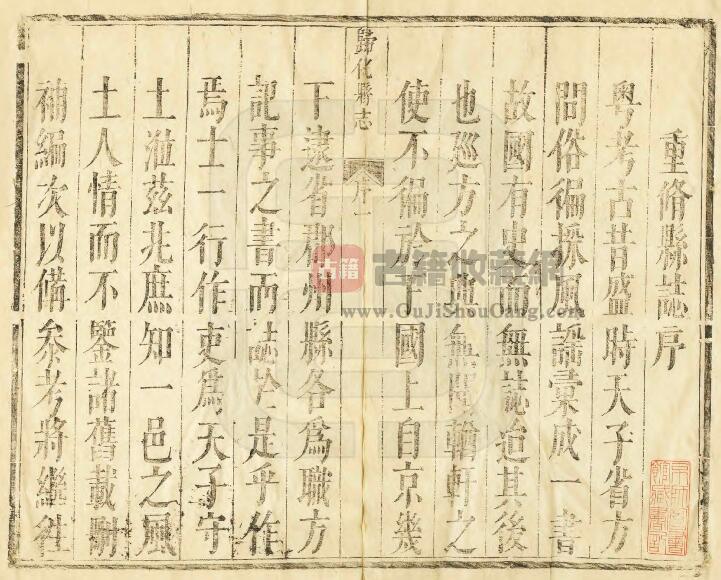 重脩縣誌序
粵考古昔盛時天子省方
問俗徧採風謠彙成一書
故國有史而無誌迨其後
也巡方之典無聞輶軒之
使不徧於下國上自京幾
歸化縣志
序
一
下逮省郡州縣各為職方
記事之書而誌於是乎作
焉士一行作吏為天子守
土涖茲兆庶知一邑之風
土人情而不鑒諸舊載耐
袖編次以備叅考將繼往
古籍
古籍收藏網
www.GuJiShouCang.com